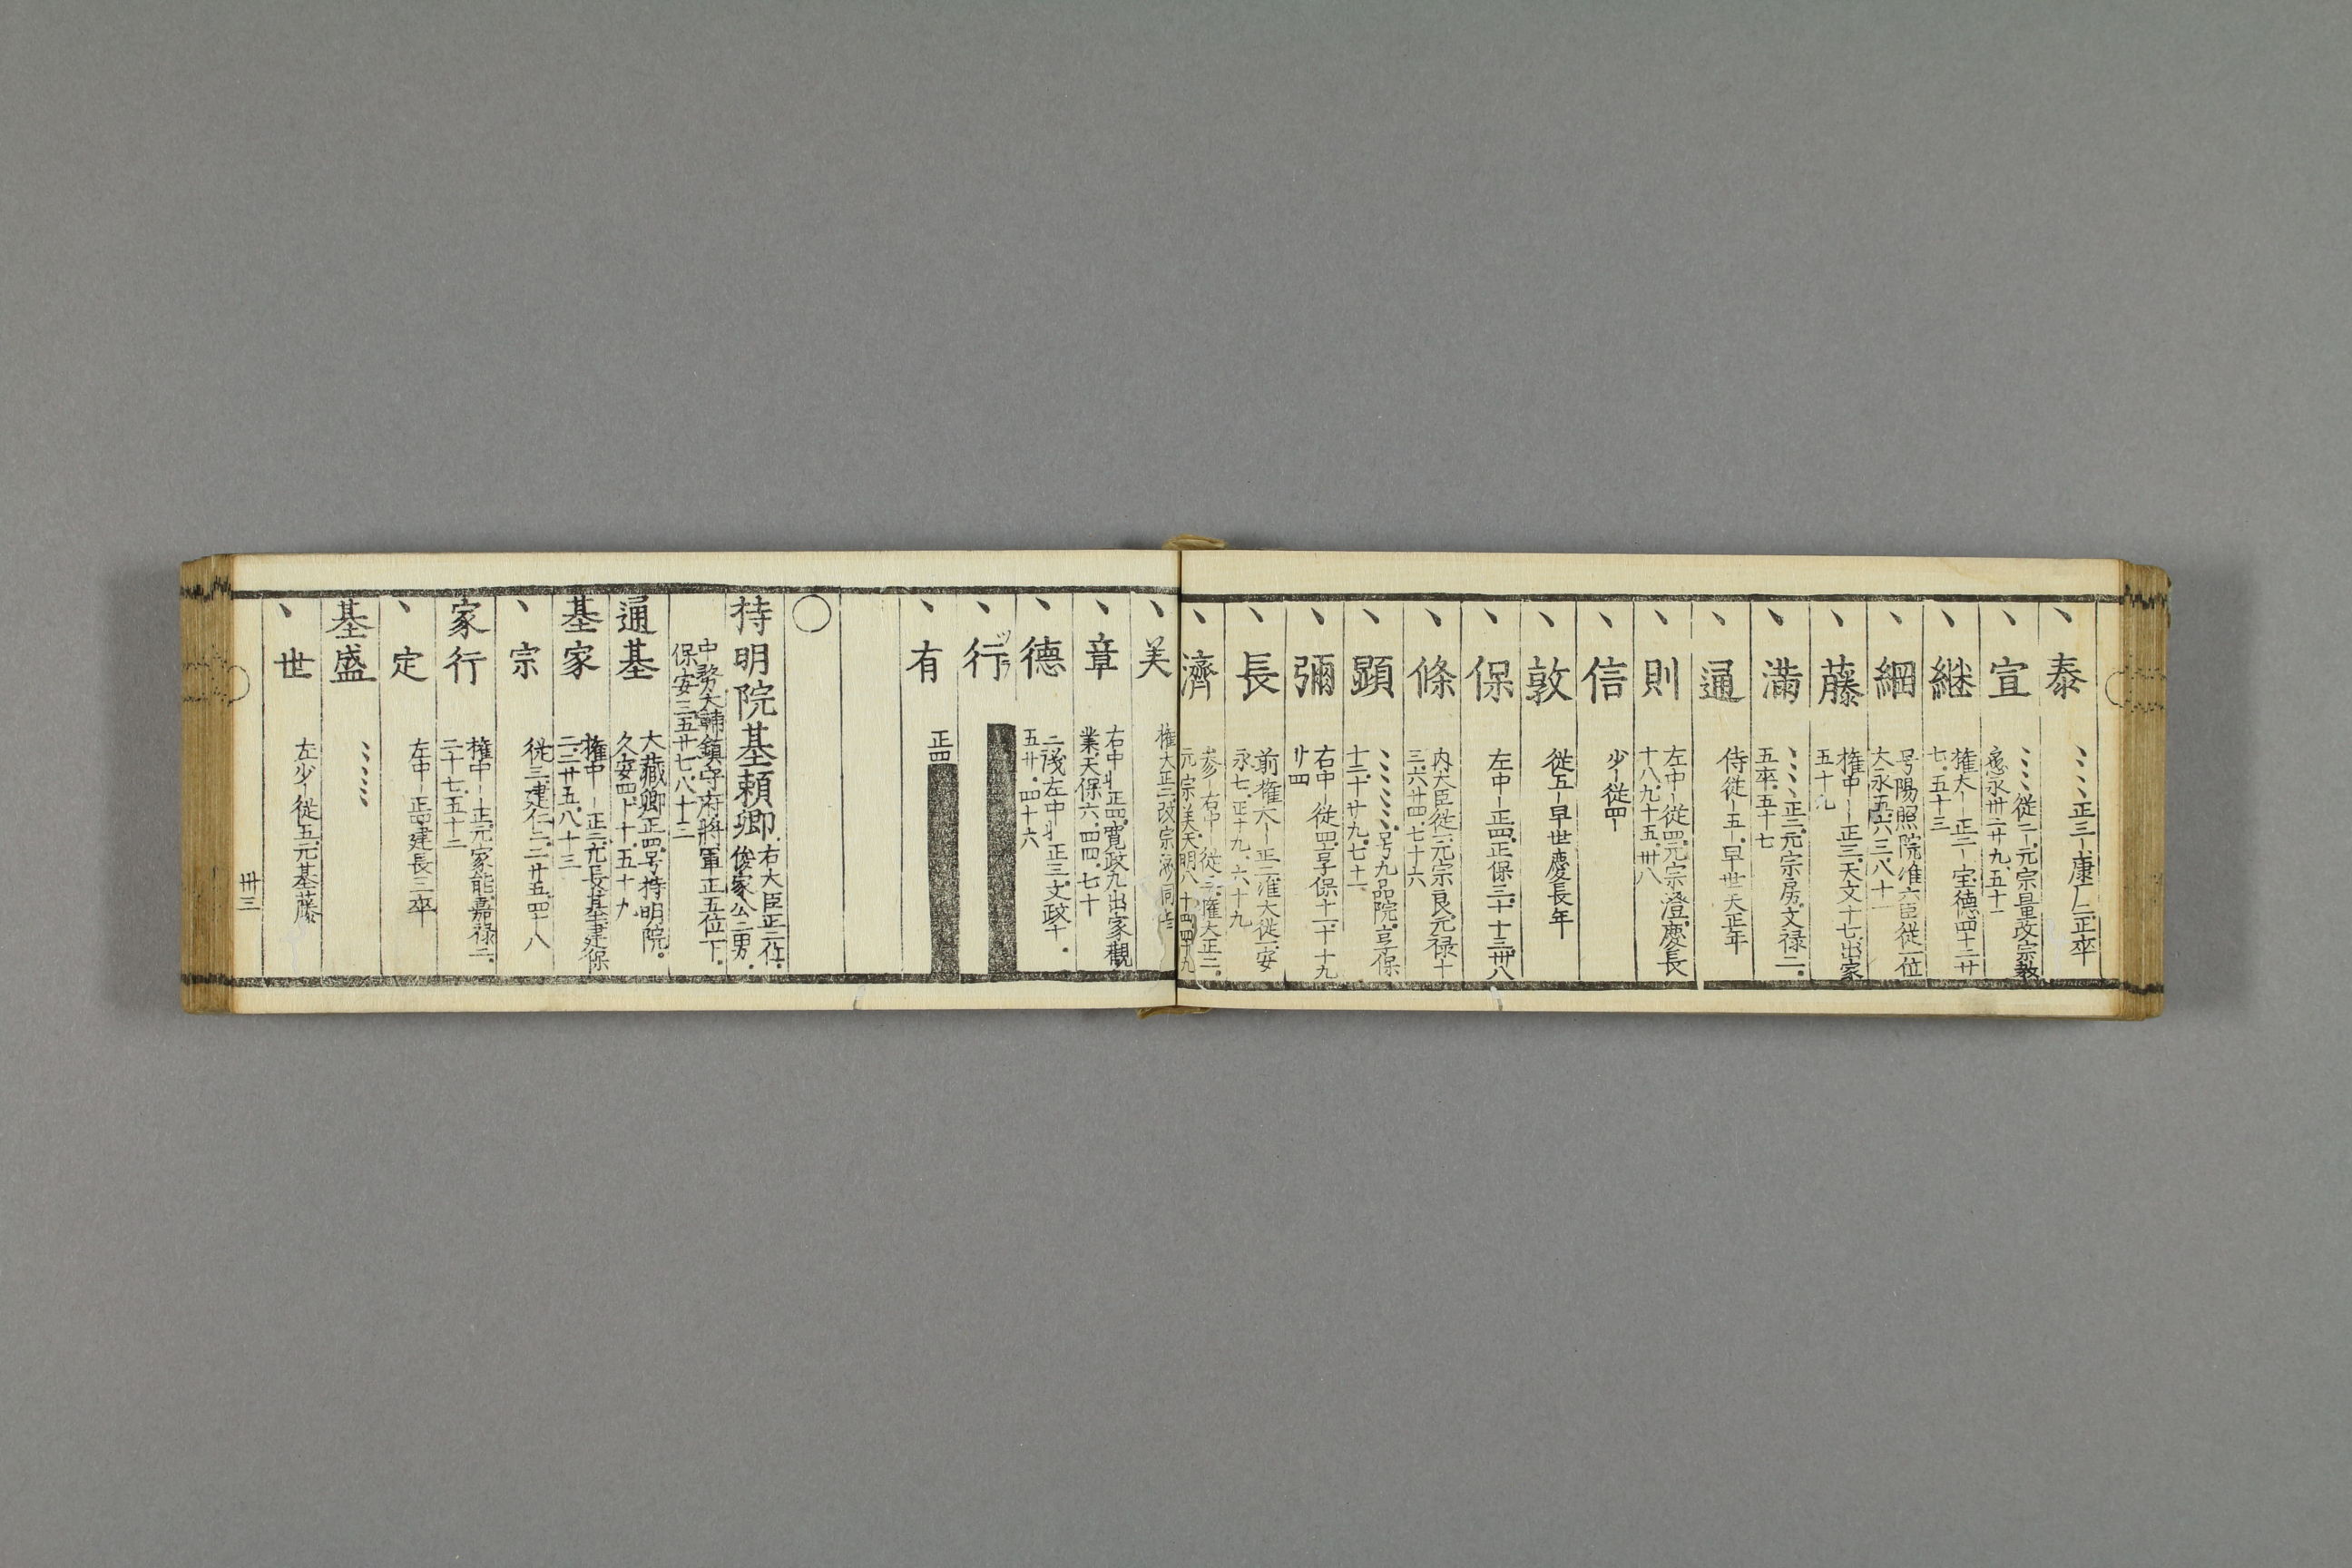 丶泰 丶丶丶丶正三康仁二正卒
丶宣 丶丶丶丶従二元宗量改宗教
應永卅二廿九五十一
丶継 権大正二宝徳四十二廿
七五十三
丶綱 号陽照院准大臣従一位
大永五六三八十一
丶藤 権中正三天文十七出家
五十九
丶満 丶丶丶丶正二元宗房文禄二
五卒五十七
丶通 侍従五早世天正年
丶則 左中従四元宗澄慶長
十八九十五卅八
丶信 少従四
丶敦 従五早世慶長年
丶保 左中正四正保三十十三卅八
丶條 内大臣従一元宗良元禄十
三六廿四七十六
丶顕 丶丶丶丶丶号九品院享保
十三十廿九七十一
丶彌 右中従四享保十一十十九
廿四
丶長 前権大正二准大従一安
永七正十九六十九
丶濟 参右中従三権大正二
元宗美天明八十四四十九
丶美 権大正三改宗濟同書
丶章 右中丬正四寛政九出家觀
業天保六四四七十
丶德 二茂左中丬正三文政十
五廿四十六
丶行
丶有 正四
○
持明院基頼卿 右大臣正二位
俊家公二男
中務大輔鎮守府將軍正五位下
保安三五廿七八十三
通基 大藏卿正四号持明院
久安四十十五十九
基家 権中正二元長基建保
二二廿五八十三
丶宗 従三建仁二二廿五四十八
家行 権中正元家能嘉禄二
二十七五十二
丶定 左中正四建長三卒
基盛 丶丶丶丶
丶世 左少従五元基藤
卅三